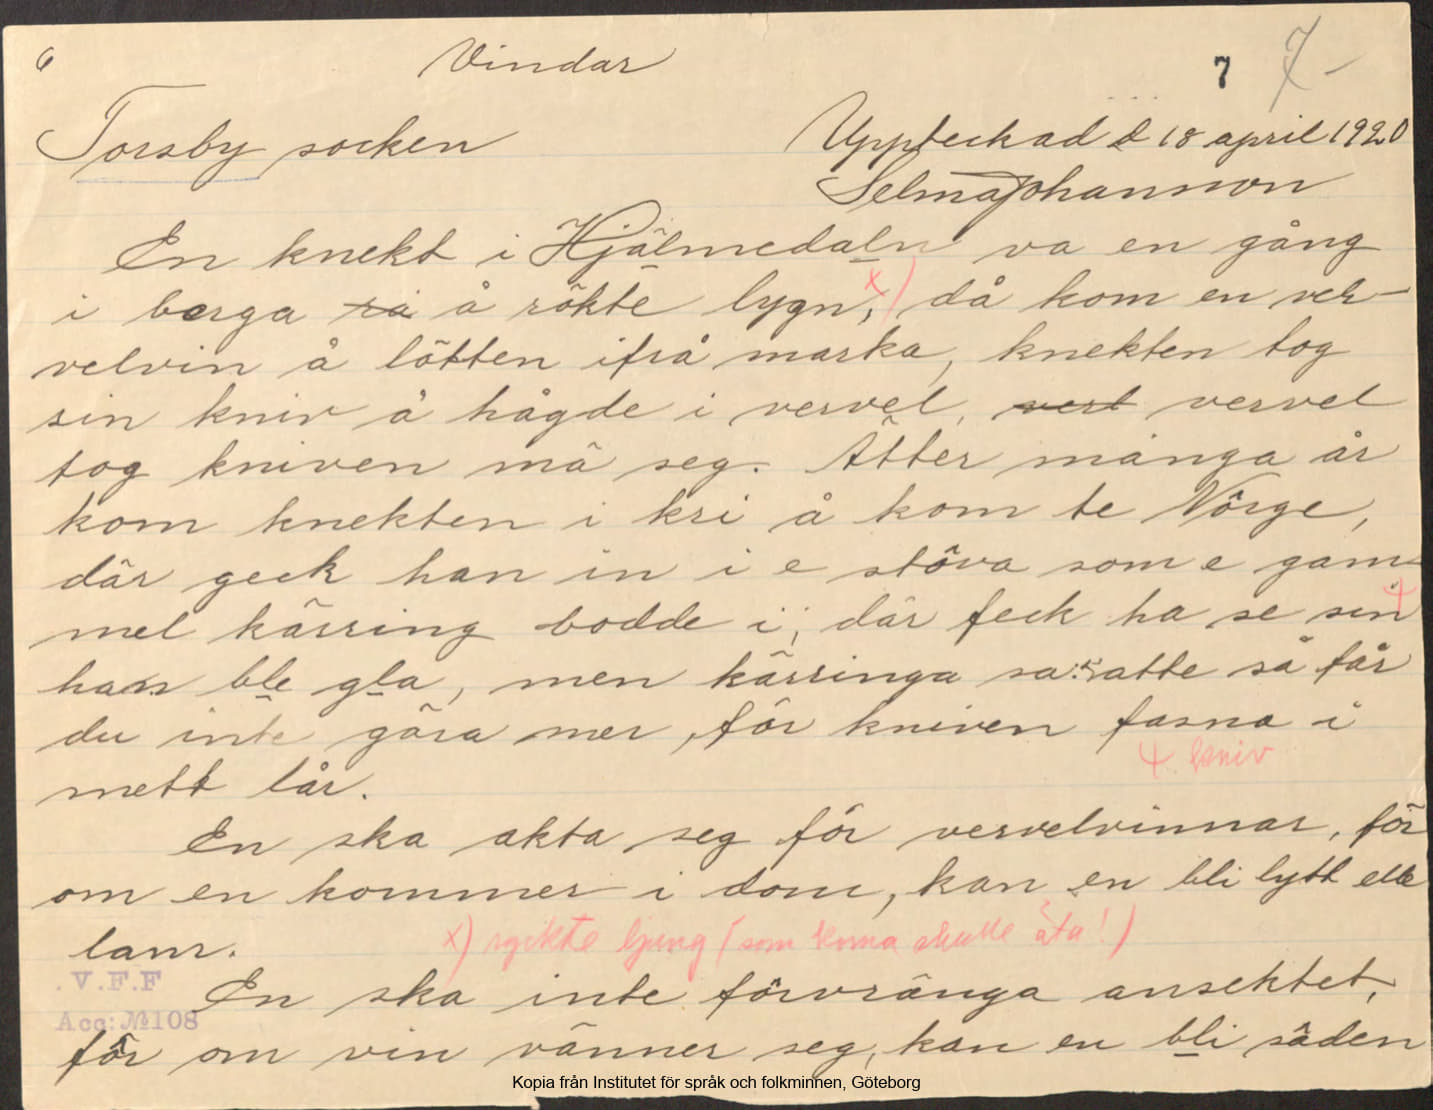 6 Vindar 7 7-
Torsby socken Uppteckad d 18 april 1920
Selma Johansson
En knekt i Hjälmedaln va en gång
i berga rå å rökte lygn, x) då kom en ver-
velvin å lötten ifrå marka, knekten tog
sin kniv å hågde i vervel, verl vervel
tog kniven mä seg. Ätter många år
kom knekten i kri å kom te Nôrge,
där geck han in i e stôva som e gam-
mel kärring bodde i; där feck ha se sin +
han ble gla, men kärringa sa: "atte så får
du inte göra mer, för kniven fasna i
mett lår. + kniv
En ska akta seg för vervelvinnar, för
om en kommer i dom, kan en bli lytt elle
lam. x) ryckte ljung (som korna skulle äta!)
. V.F.F
En ska inte förvränga ansektet,
Acc: № 108
för om vin vänner seg, kan en bli såden
Kopia från Institutet för språk och folkminnen, Göteborg